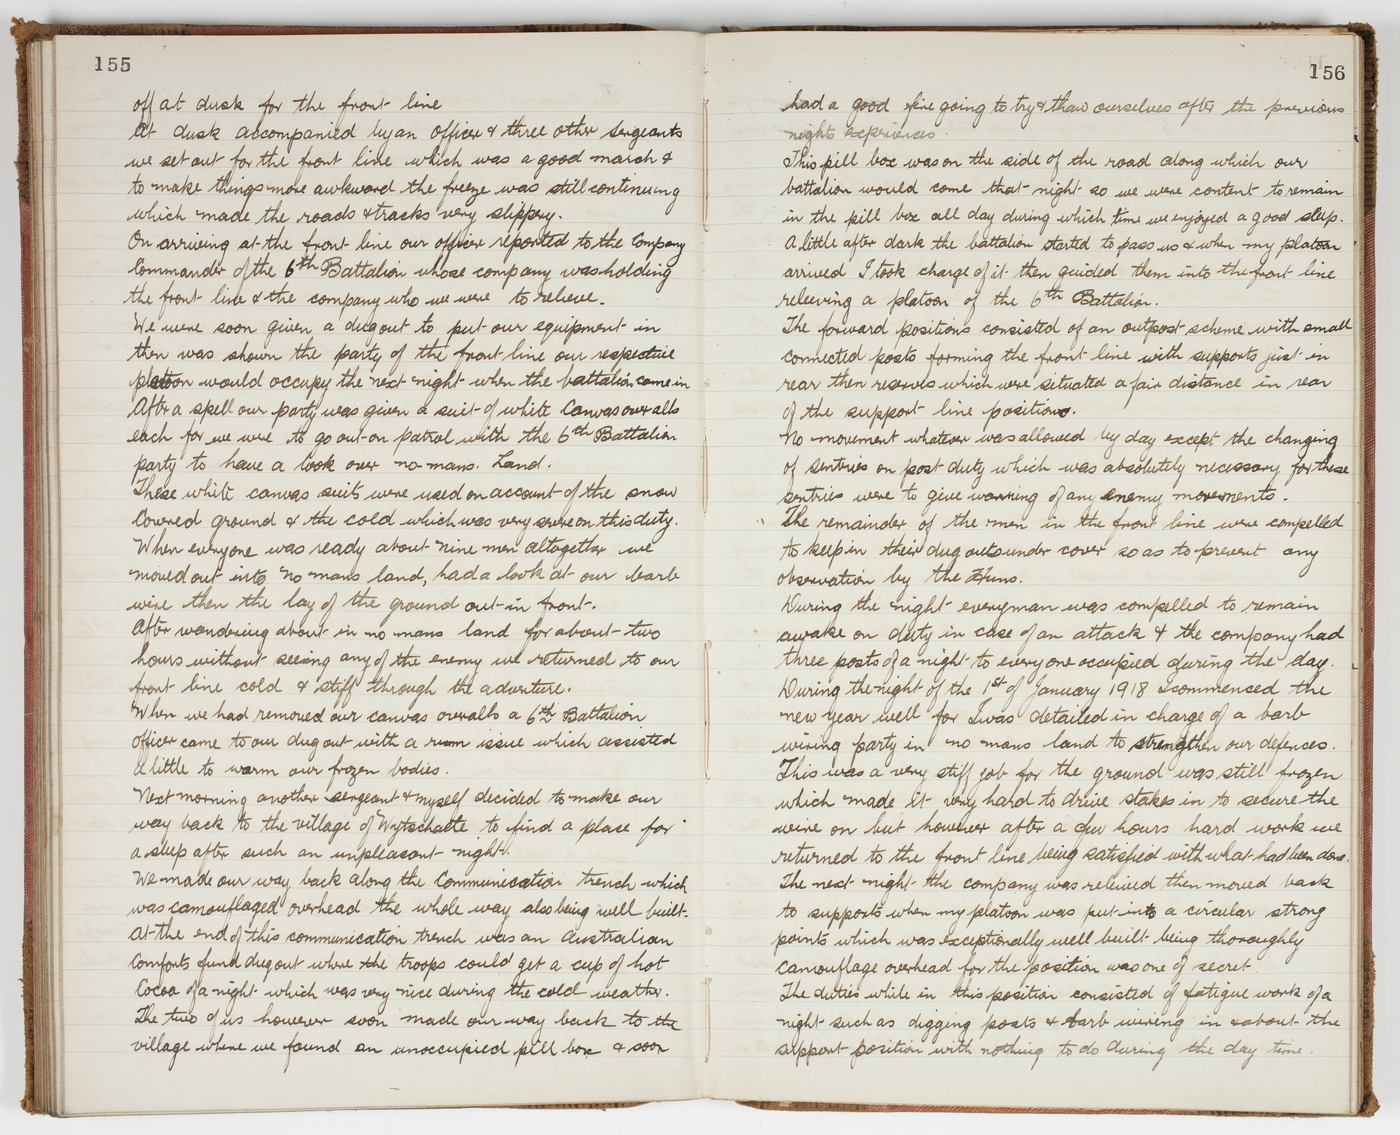 155
off at dusk for the front line
At dusk accompanied by an officer & three other sergeants
we set out for the front line which was a good march &
to make things more awkward the freeze was still continuing
which made the roads & tracks very slippery.
On arriving at the front line our officer reported to the Company
Commander of the 6th Battalion whose company was holding
the front line & the company who we were to relieve.
We were soon given a dugout to put our equipment in
then was shown the party of the front line our respective
platoon would occupy the next night when the battalion came in
After a spell our party was given a suit of white Canvas overalls
each for we were to go out on patrol with the 6th Battalion
party to have a look over no mans. Land.
These white canvas suits were used on account of the snow
Covered ground & the cold which was very severe on this duty.
When everyone was ready about nine men altogether we
moved out into no mans land, had a look at our barb
wire then the lay of the ground out in front.
After wandering about in no mans land for about two
hours without seeing any of the enemy we returned to our
front line cold & stiff through the adventure.
When we had removed our canvas overalls a 6th Battalion
officer came to our dugout with a rum issue which assisted
a little to warm our frozen bodies.
Next morning another sergeant & myself decided to make our
way back to the village of Wytschatte to find a place for
a sleep after such an unpleasant night.
We made our way back along the Communication trench which
was camouflaged overhead the whole way also being well built.
At the end of this communication trench was an Australian
Comforts fund dugout where the troops could get a cup of hot
Cocoa of a night which was very nice during the cold weather.
The two of us however soon made our way back to the
village where we found an unoccupied pill box & soon
156
had a good fire going to try & thaw ourselves after the previous
nights experiences
This pill box was on the side of the road along which our
battalion would come that night so we were content to remain
in the pill box all day during which time we enjoyed a good sleep.
A little after dark the battalion started to pass us & when my platoon
arrived I took charge of it then guided them into the front line
releeving a platoon of the 6th Battalion.
The forward positions consisted of an outpost scheme with small
connected posts forming the front line with supports just in
rear then reserves which were situated a fair distance in rear
of the support line positions.
No movement whatever was allowed by day except the changing
of sentries on post duty which was absolutely necessary for these
sentries were to give warning of any enemy movements.
The remainder of the men in the front line were compelled
to keep in their dug outs under cover so as to prevent any
observation by the Huns.
During the night everyman was compelled to remain
awake on duty in case of an attack & the company had
three posts of a night to every one occupied during the day.
During the night of the 1st of January 1918 I commenced the
new year well for I was detailed in charge of a barb
wiring party in no mans land to strengthen our defences.
This was a very stiff job for the ground was still frozen
which made it very hard to drive stakes in to secure the
wire on but however after a few hours hard work we
returned to the front line being satisfied with what had been done.
The next night the company was releived then moved back
to supports when my platoon was put into a circular strong
points which was exceptionally well built being thoroughly
camouflage overhead for the position was one of secret
The duties while in this position consisted of fatigue work of a
night such as digging posts & barb wireing in & about the
support position with nothing to do during the day time.